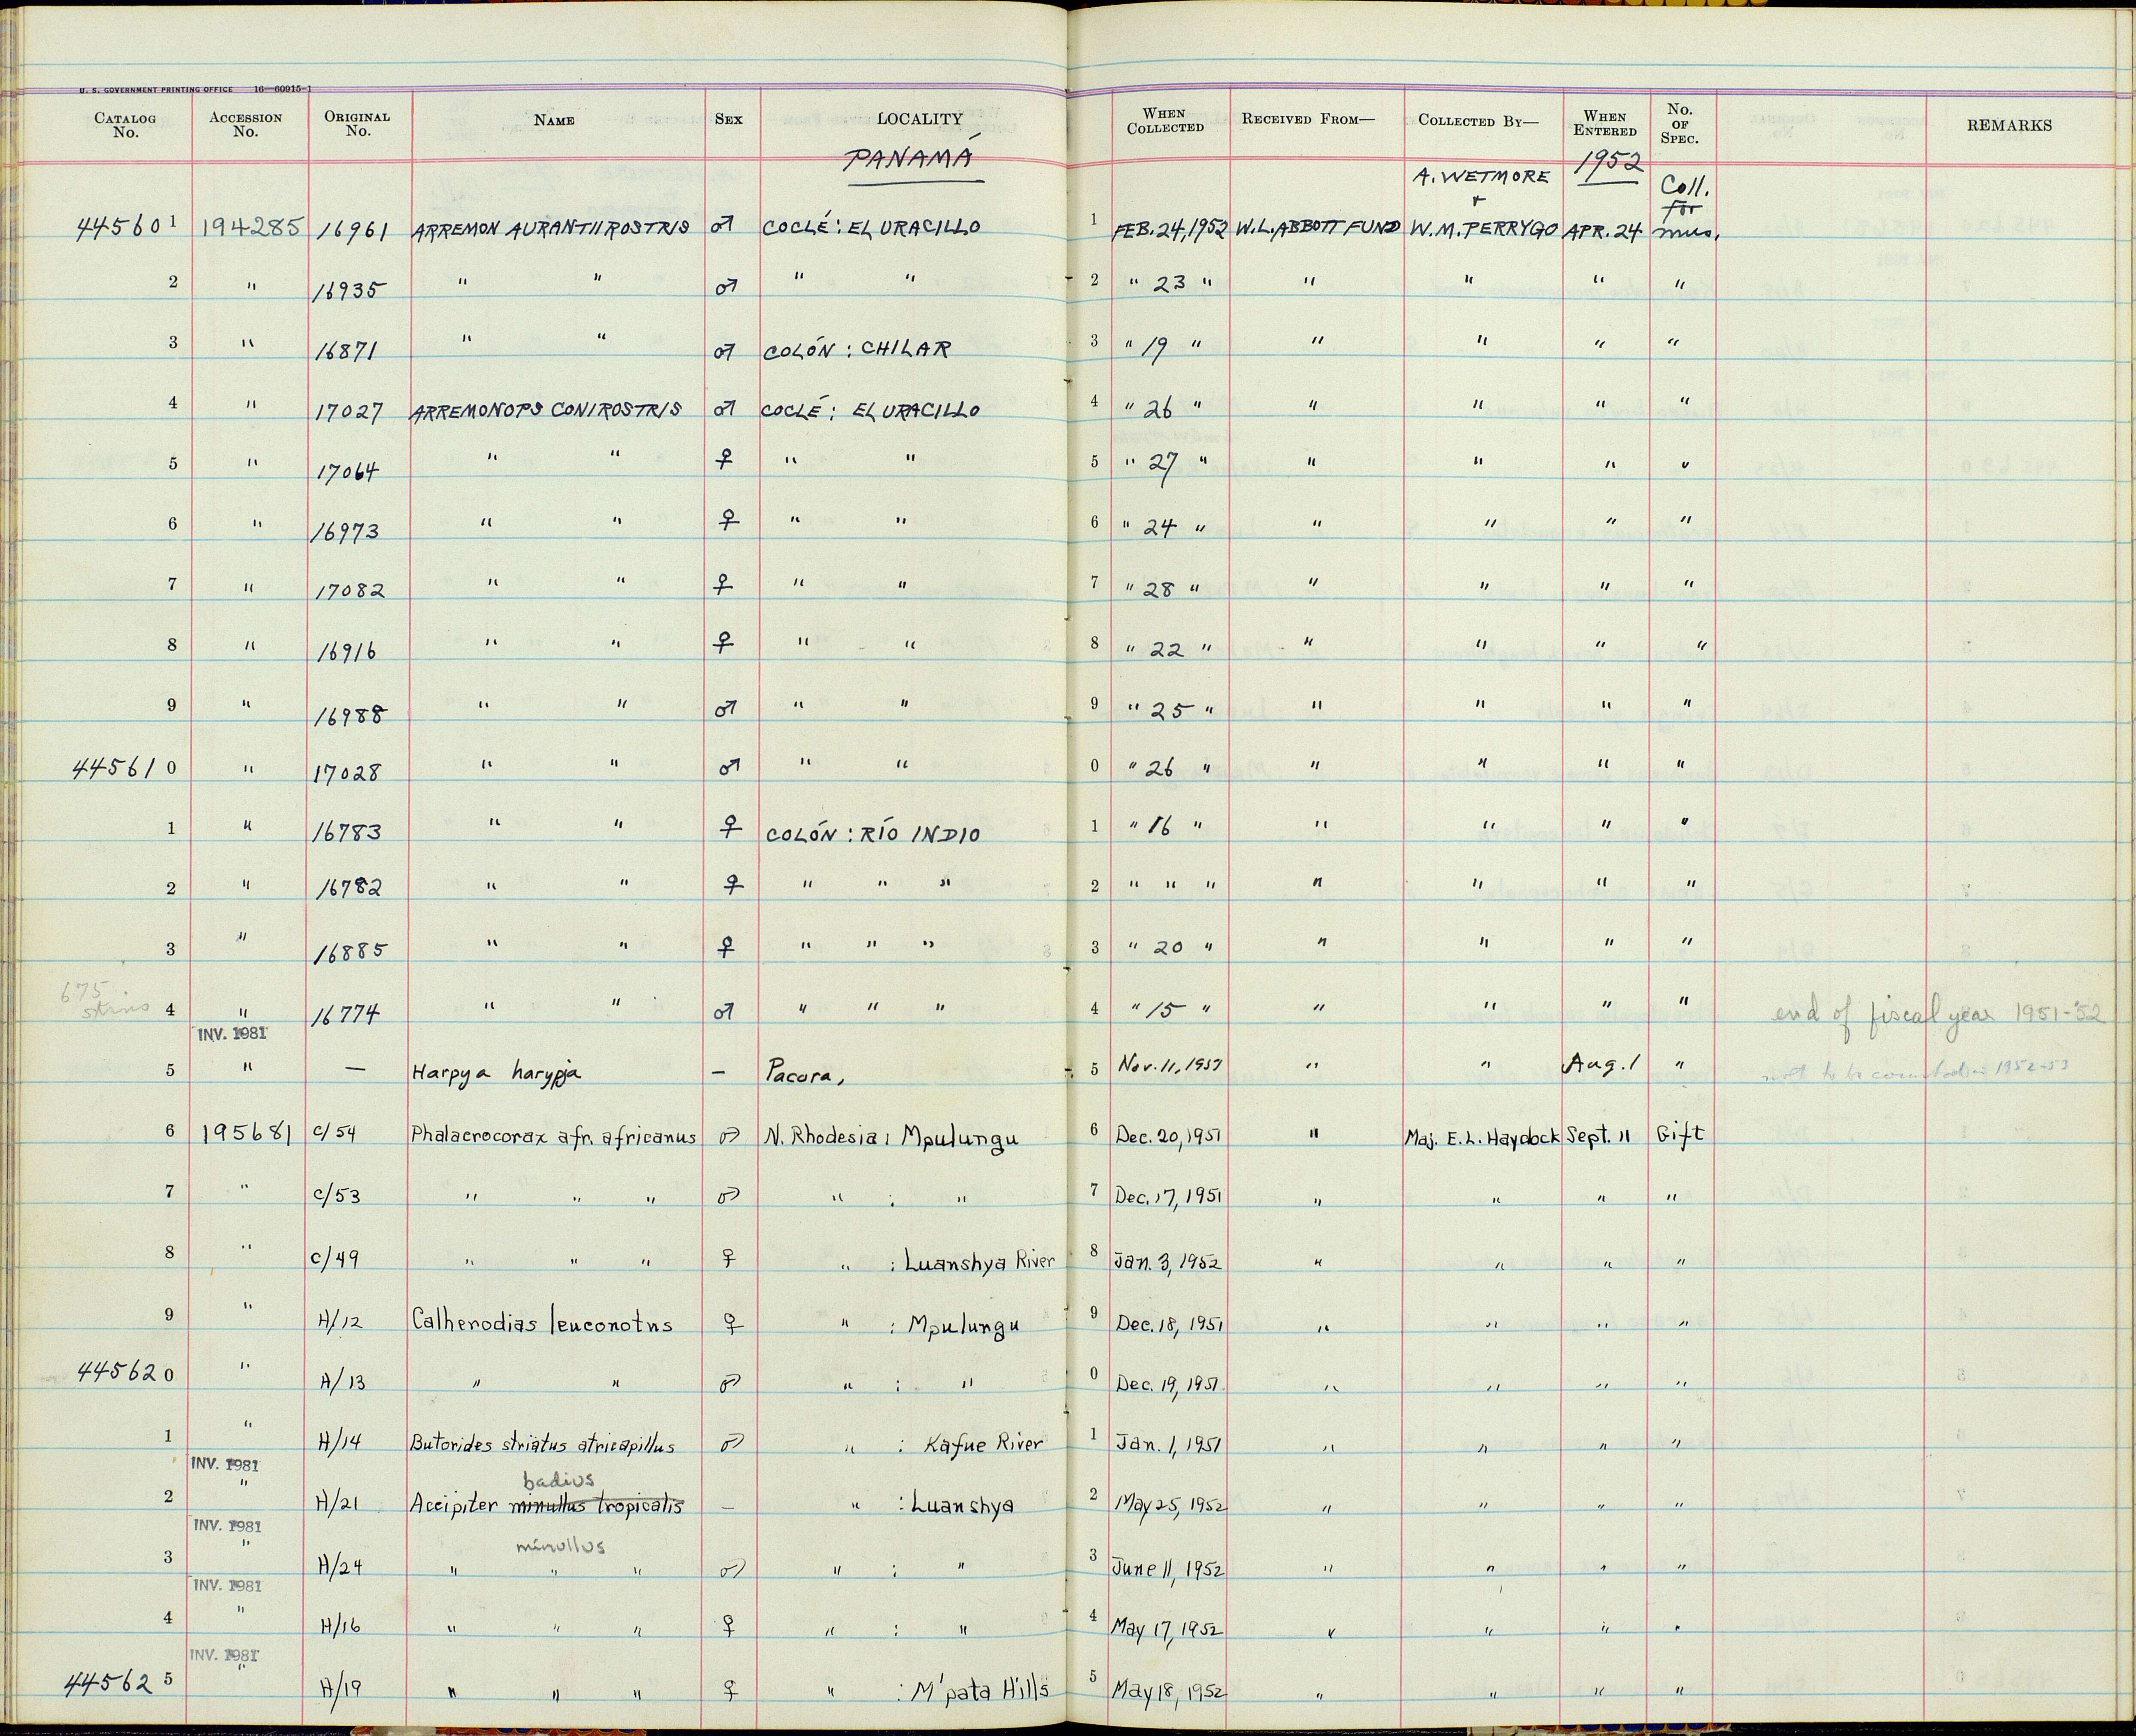 U. S. GOVERNMENT PRINTING OFFICE 16—60915-1
CATALOG No. ACCESSION No. ORIGINAL No. NAME SEX LOCALITY WHEN COLLECTED RECEIVED FROM— COLLECTED BY— WHEN ENTERED No. OF SPEC. REMARKS
PANAMÁ 1952
A. WETMORE Coll.
445601 194285 16961 ARREMON AURANTIIROSTRIS ♂ COCLÉ: EL URACILLO 1 FEB. 24, 1952 W.L. ABBOTT FUND + W.M. PERRYGO APR. 24 for mus.
2 " 16935 " " ♂ " " 2 " 23 " " " " "
3 " 16871 " " ♂ COLÓN : CHILAR 3 " 19 " " " " "
4 " 17027 ARREMONOPS CONIROSTRIS ♂ COCLÉ: EL URACILLO 4 " 26 " " " " "
5 " 17064 " " ♀ " " 5 " 27 " " " " "
6 " 16973 " " ♀ " " 6 " 24 " " " " "
7 " 17082 " " ♀ " " 7 " 28 " " " " "
8 " 16916 " " ♀ " " 8 " 22 " " " " "
9 " 16988 " " ♂ " " 9 " 25 " " " " "
445610 " 17028 " " ♂ " " 0 " 26 " " " " "
1 " 16783 " " ♀ COLÓN : RÍO INDIO 1 " 16 " " " " "
2 " 16782 " " ♀ " " " 2 " " " " " " "
3 " 16885 " " ♀ " " " 3 " 20 " " " " "
675
4 " 16774 " " ♂ " " " 4 " 15 " " " " " end of fiscal year 1951-'52
INV. 1981
5 " — Harpya harypja – Pacora, 5 Nov. 11, 1951 " " Aug. 1 " to be counted in 1952-53
6 195681 C/54 Phalacrocorax afr. africanus ♂ N. Rhodesia: Mpulungu 6 Dec. 20, 1951 " Maj. E.L. Haydock Sept. 11 Gift
7 " C/53 " " " ♂ " : " 7 Dec. 17, 1951 " " " "
8 " C/49 " " " ♀ " : Luanshya River 8 Jan. 3, 1952 " " " "
9 " H/12 Calherodias leuconotus ♀ " : Mpulungu 9 Dec. 18, 1951 " " " "
445620 " H/13 " " ♂ " : " 0 Dec. 19, 1951 " " " "
1 " H/14 Butorides striatus atricapillus ♂ " : Kafue River 1 Jan. 1, 1951 " " " "
INV. 1981 badius
2 " H/21 Accipiter minullus tropicalis – " : Luanshya 2 May 25, 1952 " " " "
INV. 1981 minullus
3 " H/24 " " " ♂ " : " 3 June 11, 1952 " " " "
INV. 1981
4 " H/16 " " " ♀ " : " 4 May 17, 1952 " " " "
INV. 1981
445625 " H/19 " " " ♀ " : M'pata Hills 5 May 18, 1952 " " " "